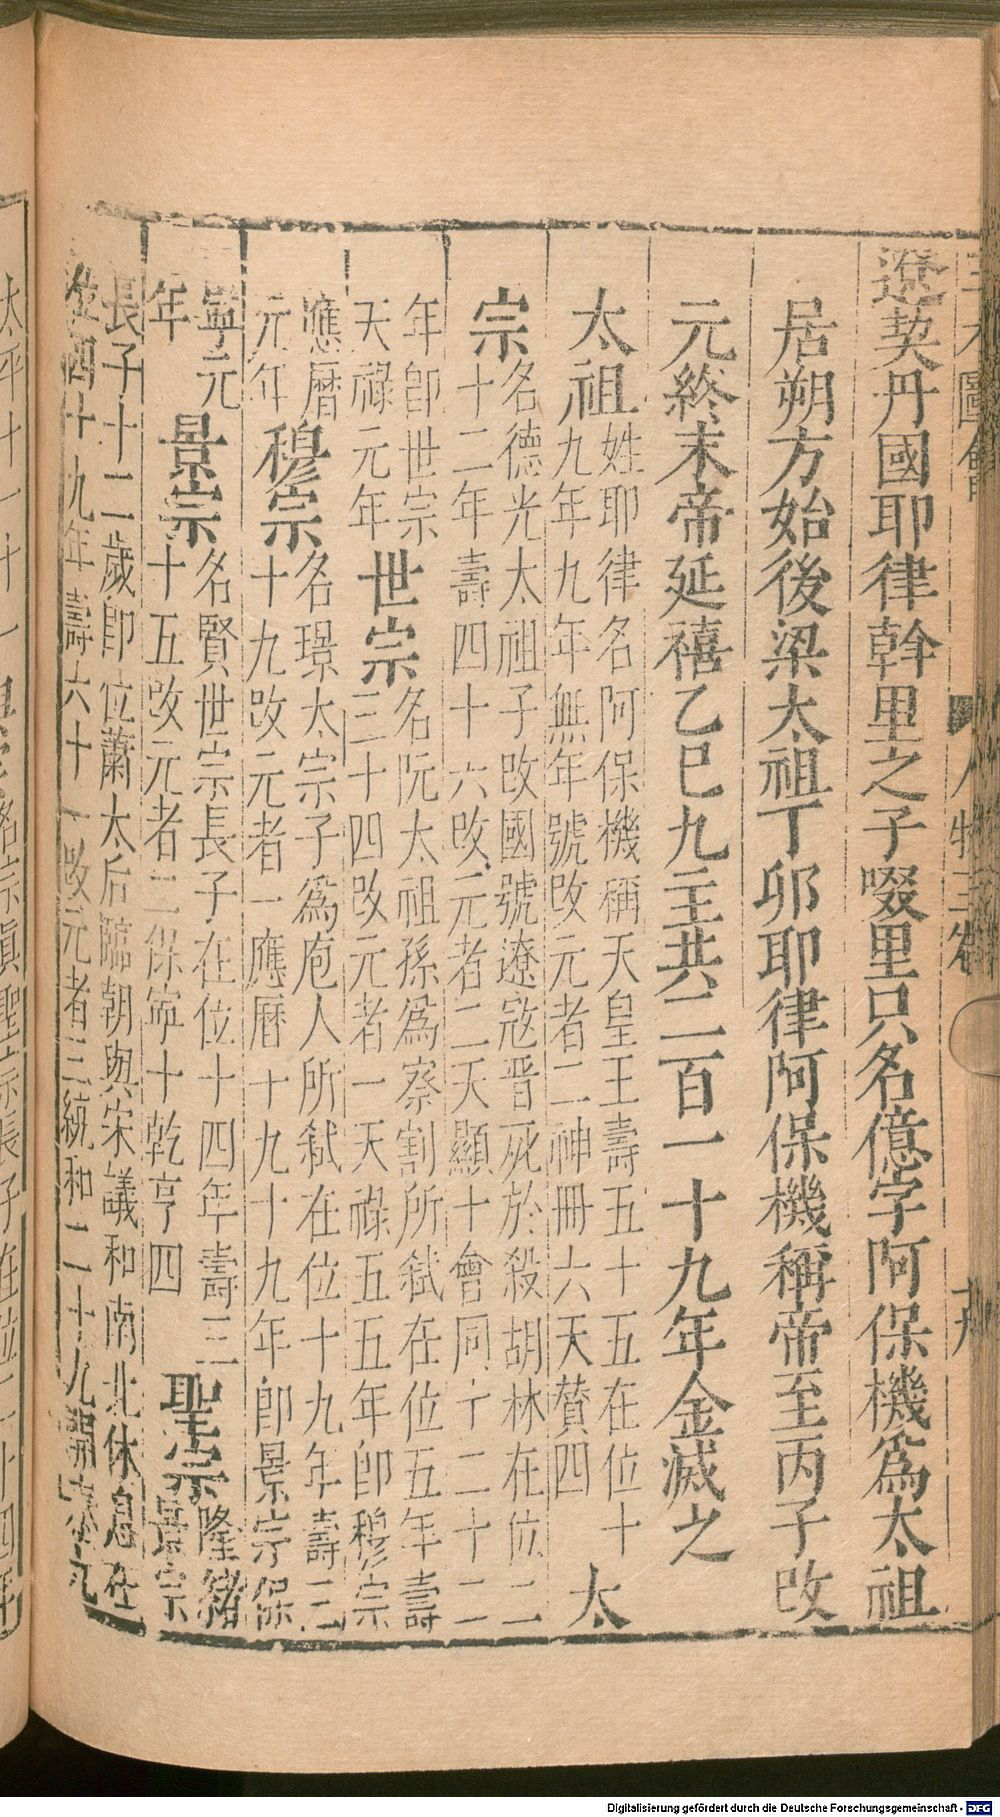 三才圖會 人物三卷
遼契丹國耶律斡里之子啜里只名億字阿保機爲太祖
居朔方始後梁太祖丁卯耶律阿保機稱帝至丙子改
元終末帝延禧乙巳九主共二百一十九年金滅之
太祖
姓耶律名阿保機稱天皇王壽五十五在位十
九年九年無年號改元者二神冊六天贊四
太
宗
名德光太祖子改國號遼寇晋死於殺胡林在位二
十二年壽四十六改元者二天顯十會同十二十二
年卽世宗
天祿元年
世宗
名阮太祖孫爲察割所弑在位五年壽
三十四改元者一天祿五五年卽穆宗
應曆
元年
穆宗
名璟太宗子爲庖人所弑在位十九年壽三
十九改元者一應曆十九十九年卽景宗保
寧元
年
景宗
名賢世宗長子在位十四年壽三
十五改元者二保寧十乾亨四
聖宗
隆緒
景宗
長子十二歲卽位蕭太后臨朝與宋議和南北休息在
位四十九年壽六十一改元者三統和二十九開泰九
太平十一十一
名宗眞聖宗長子在位二十四年
Digitalisierung gefördert durch die Deutsche Forschungsgemeinschaft - DFG